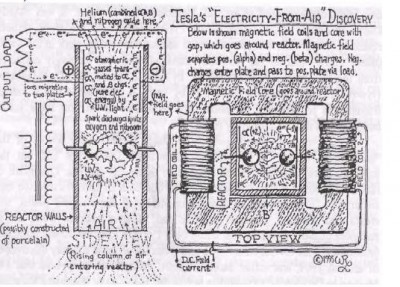 Helium (combined α & β)
& nitrogen oxide here
Tesla's "Electricity-From-Air" Discovery
Below is shown magnetic field coils and core with
gap, which goes around reactor. Magnetic field
separates pos. (alpha) and neg. (beta) charges. Neg.
charges enter plate and pass to pos. plate via load.
OUTPUT LOAD
Ions migrating
to two plates
atmospheric
gases trans-
muted to α
and β
energy) by
u.v. light.
Spark discharges ignite
oxygen and nitrogen
(mag.
field goes
here)
u.v.
AIR
REACTOR WALLS
(possibly constructed
of porcelain)
SIDE VIEW
(Rising column of air
entering reactor)
Magnetic Field Core (goes around reactor)
FIELD COIL
REACTOR
FIELD COIL
B
TOP VIEW
D.C. Field
current